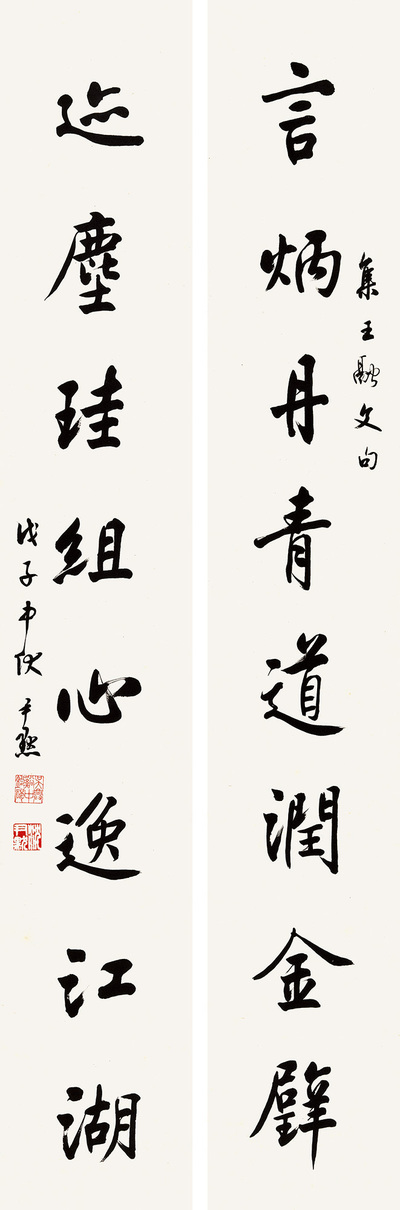 集王融文句
言炳丹青道潤金璧
迹塵珪組心逸江湖
戊子中伏 尹默